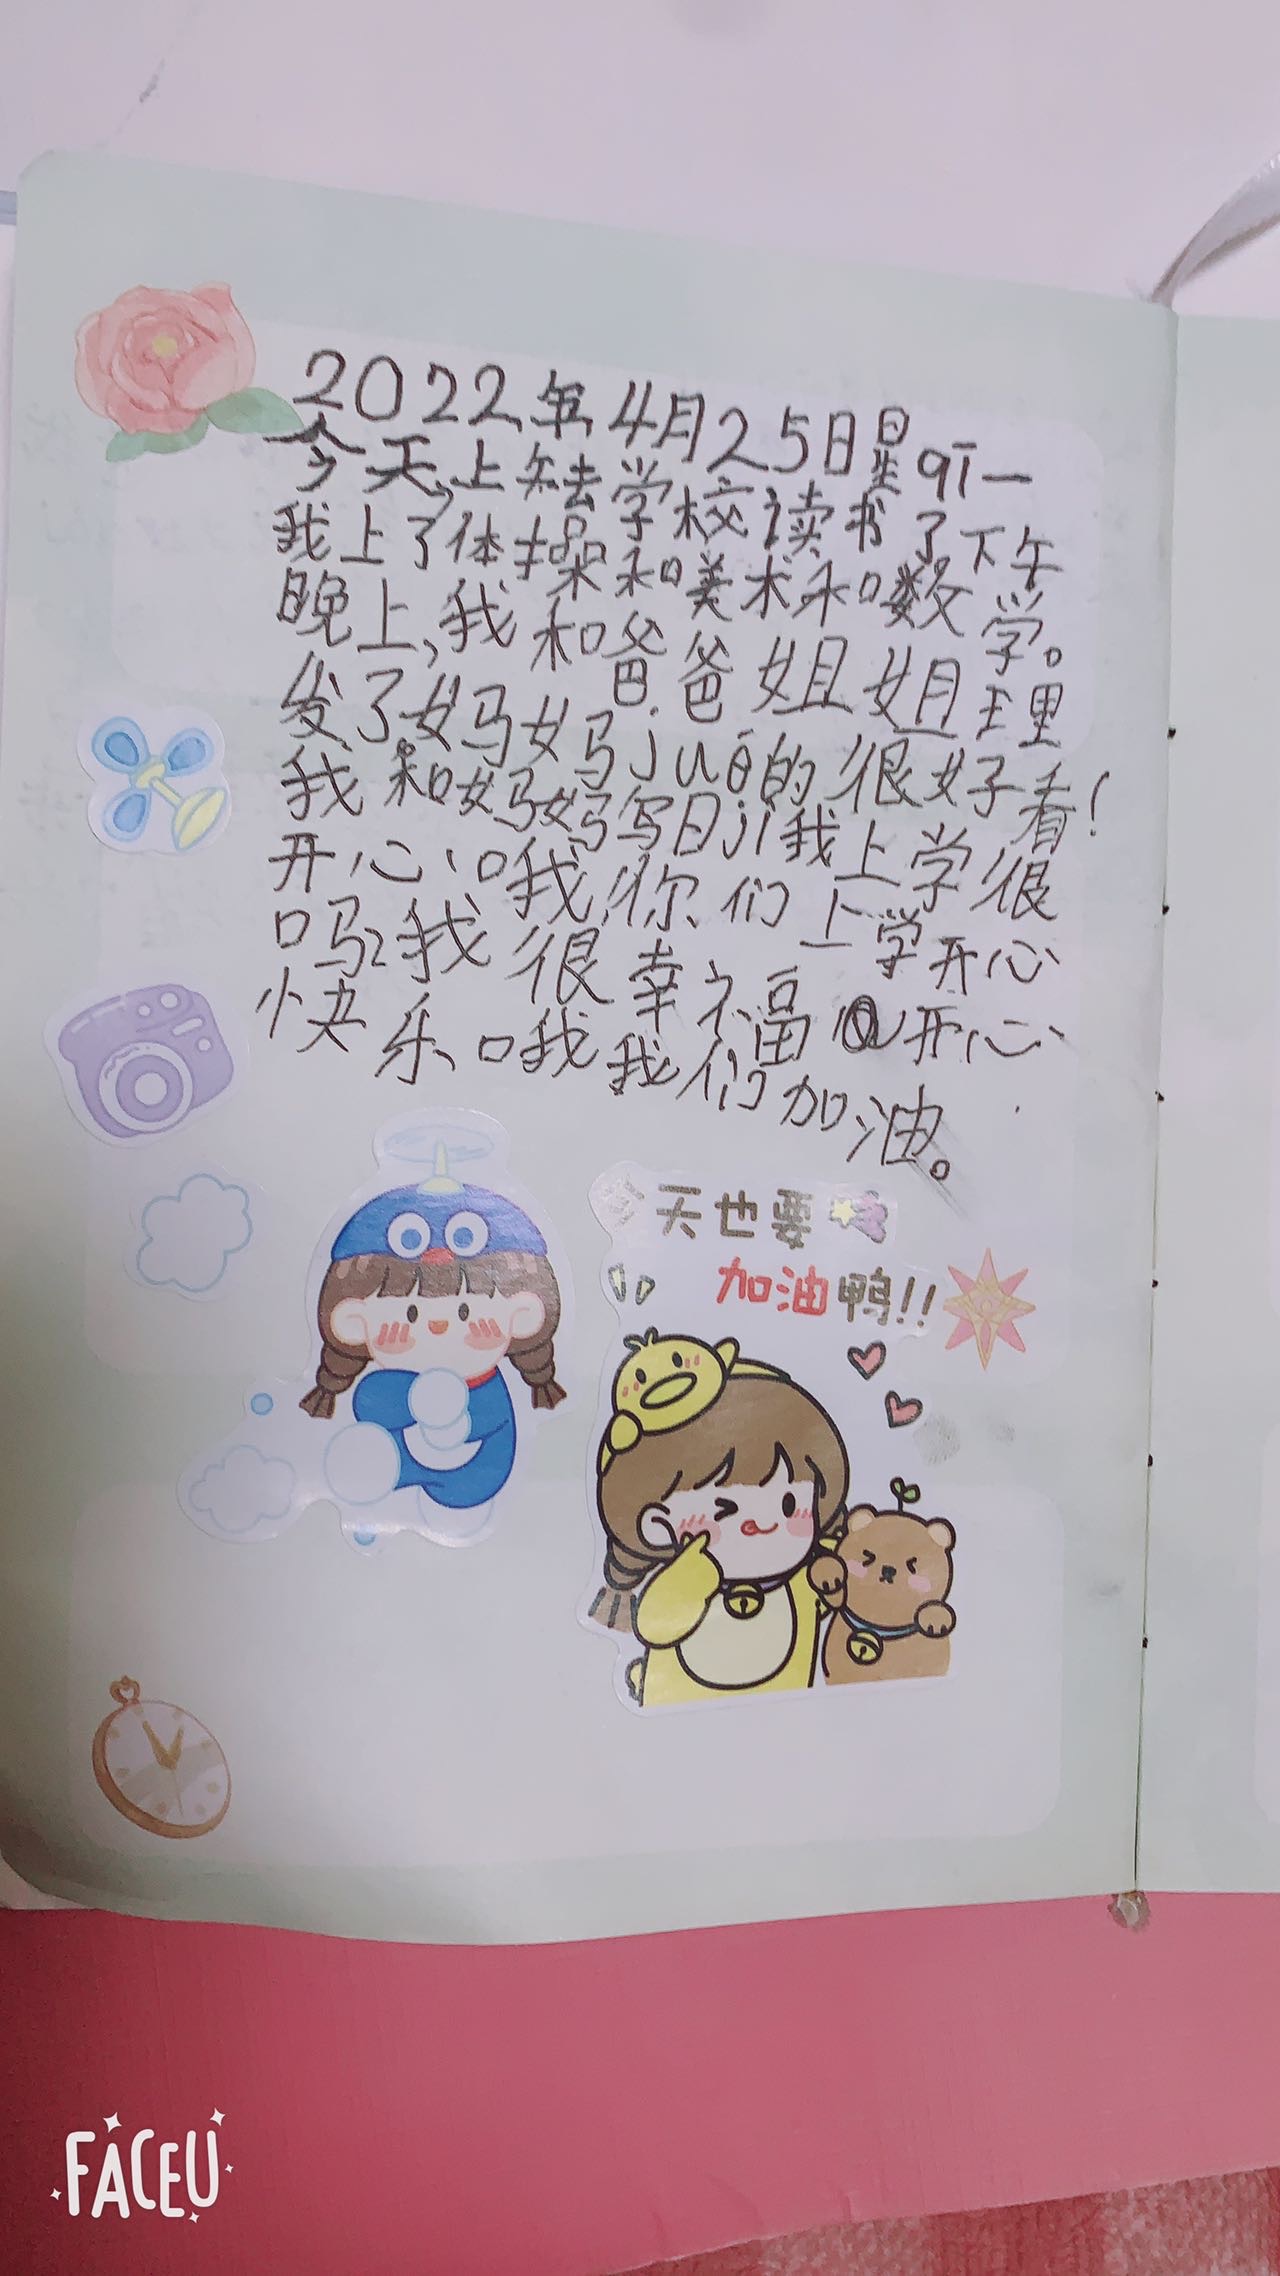 2022年4月25日星qī一
今天,上知去学校读书了下午
我上了体操和美术和数学。
晚上,我和爸爸姐姐王里
发了妈妈juě的很好看!
我和妈妈写日jì我上学很
开心哦,你们上学开心
吗?我很幸福 开心
快乐哦我们加油。
今天也要
加油鸭!!
FACEU